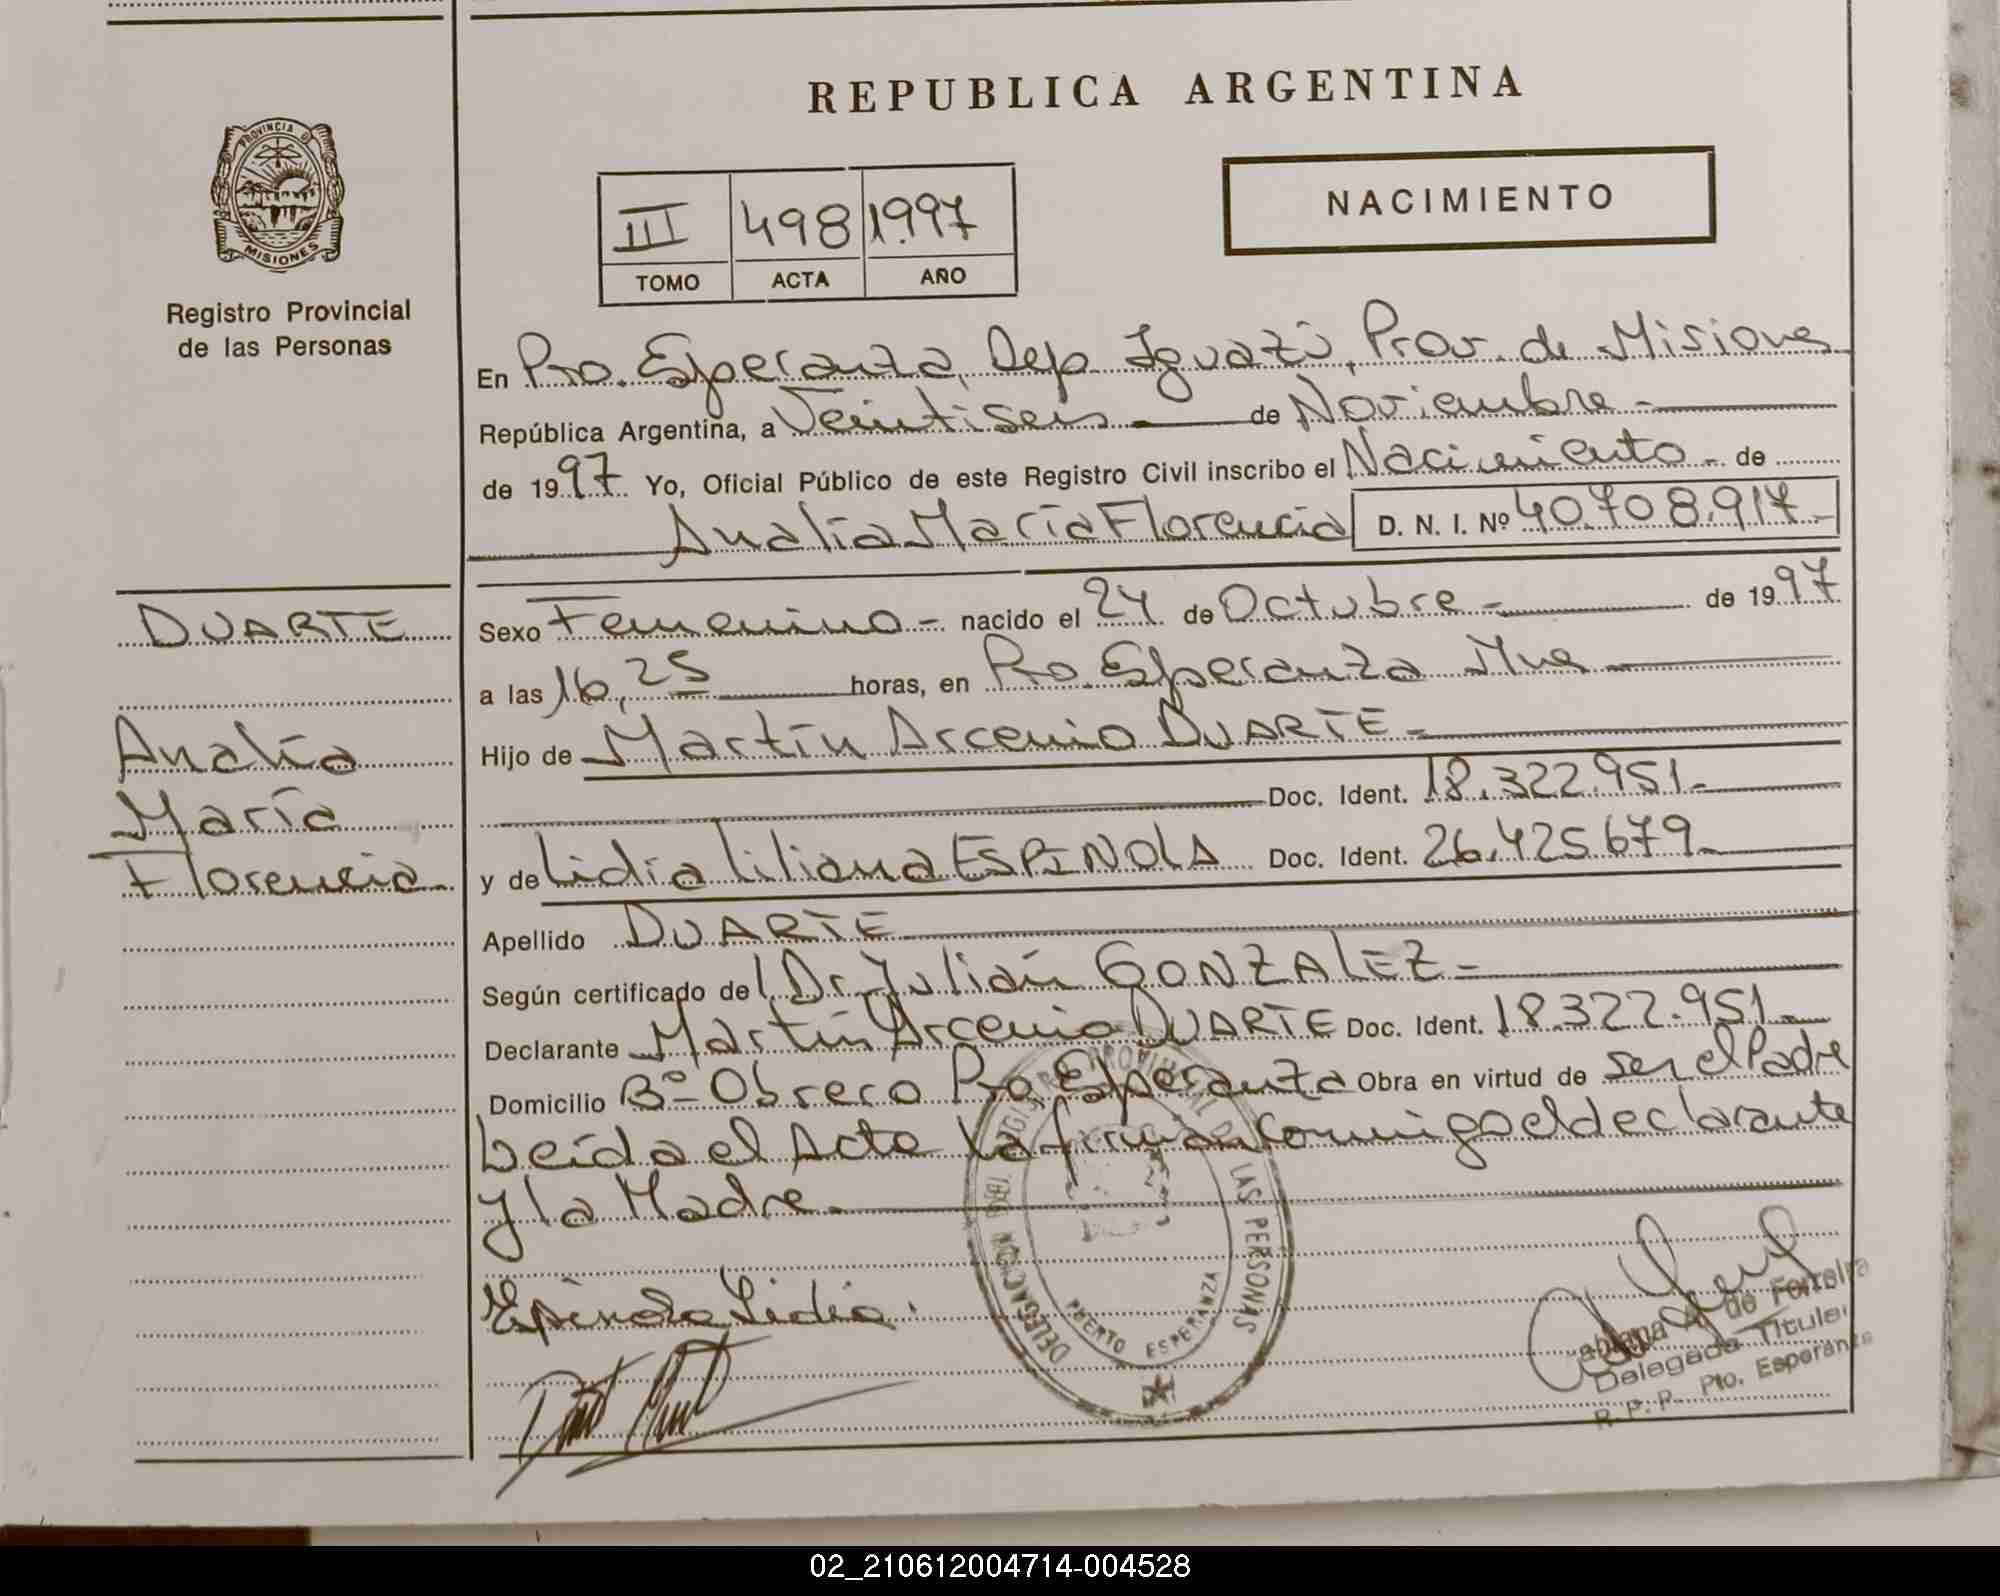 REPUBLICA ARGENTINA
PROVINCIA DE
MISIONES
Registro Provincial
de las Personas
III 498 1.997
TOMO ACTA AÑO
NACIMIENTO
En Pto. Esperanza, Dep. Iguazú, Prov. de Misiones
República Argentina, a Veintiseis de Noviembre -
de 1997 Yo, Oficial Público de este Registro Civil inscribo el Nacimiento - de
Analía María Florencia D. N. I. Nº 40.708.917-
DUARTE
Analía
María
Florencia
Sexo Femenino - nacido el 24 de Octubre - de 1997
a las 16,25 horas, en Pto. Esperanza Mnes
Hijo de Martín Arcenio DUARTE -
Doc. Ident. 18.322.951-
y de Lidia Liliana ESPINOLA Doc. Ident. 26.425.679-
Apellido DUARTE
Según certificado del Dr. Julián GONZALEZ -
Declarante Martín Arcenio DUARTE Doc. Ident. 18.322.951-
Domicilio Bº- Obrero Pto. Esperanza Obra en virtud de ser el Padre
Leída el Acta la firman conmigo el declarante
y la Madre.
Espinola Lidia.
REGISTRO PROVINCIAL DE LAS PERSONAS
DELEGACION
PUERTO ESPERANZA
de Ferreira
Delegada Titular
R. P. P. Pto. Esperanza
02_210612004714-004528